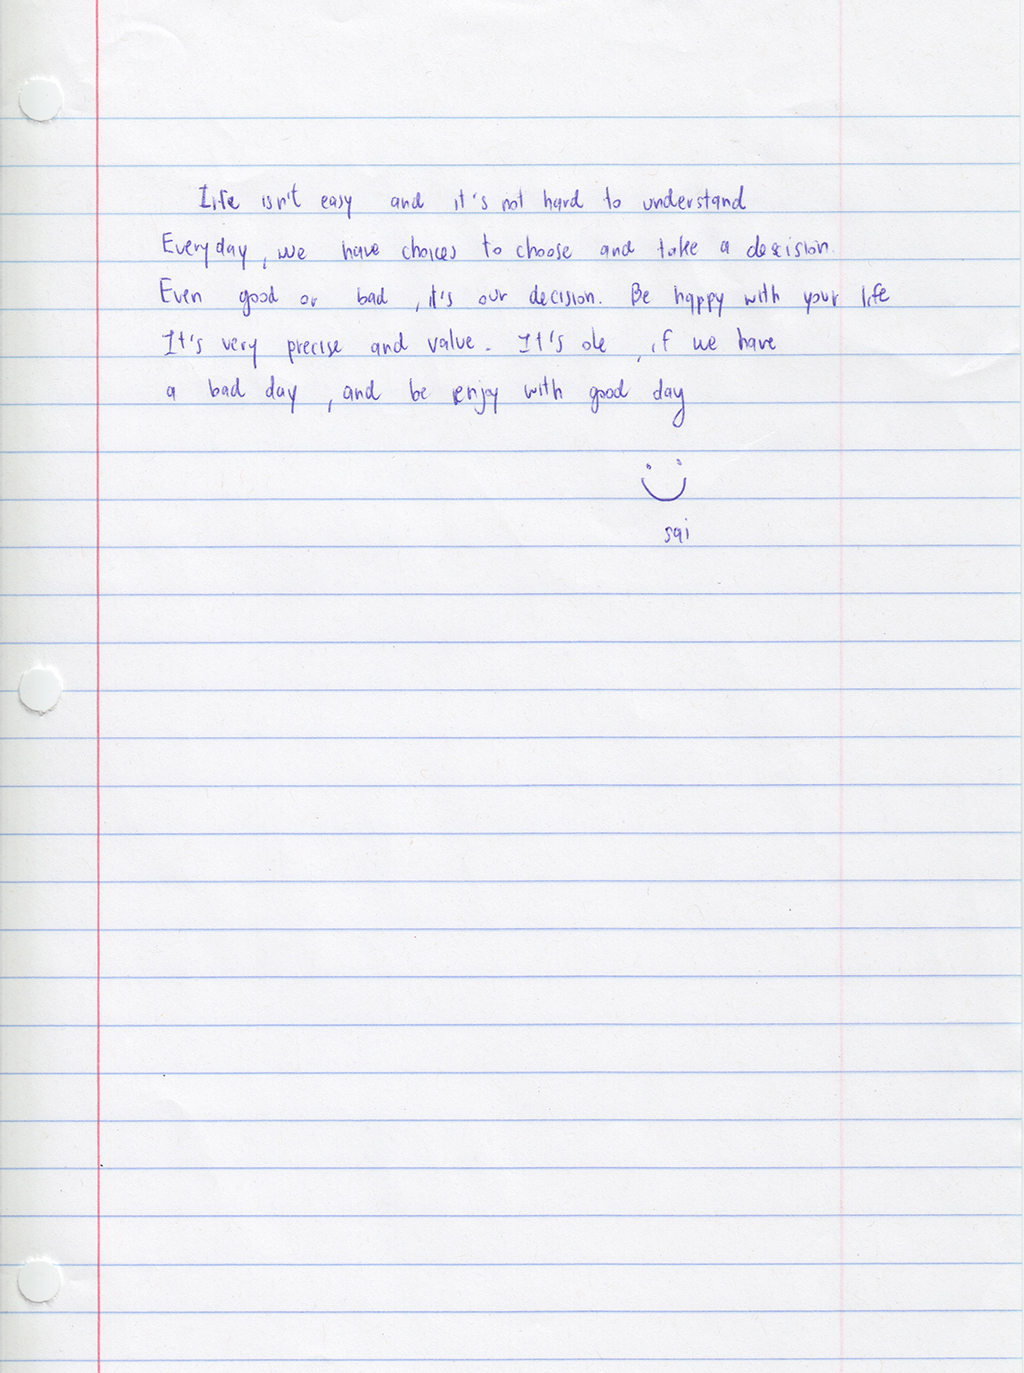 Life isn't easy and it's not hard to understand
Everyday, we have choices to choose and take a decision.
Even good or bad, it's our decision. Be happy with your life
It's very precise and value. It's ok, if we have
a bad day, and be enjoy with good day
sai